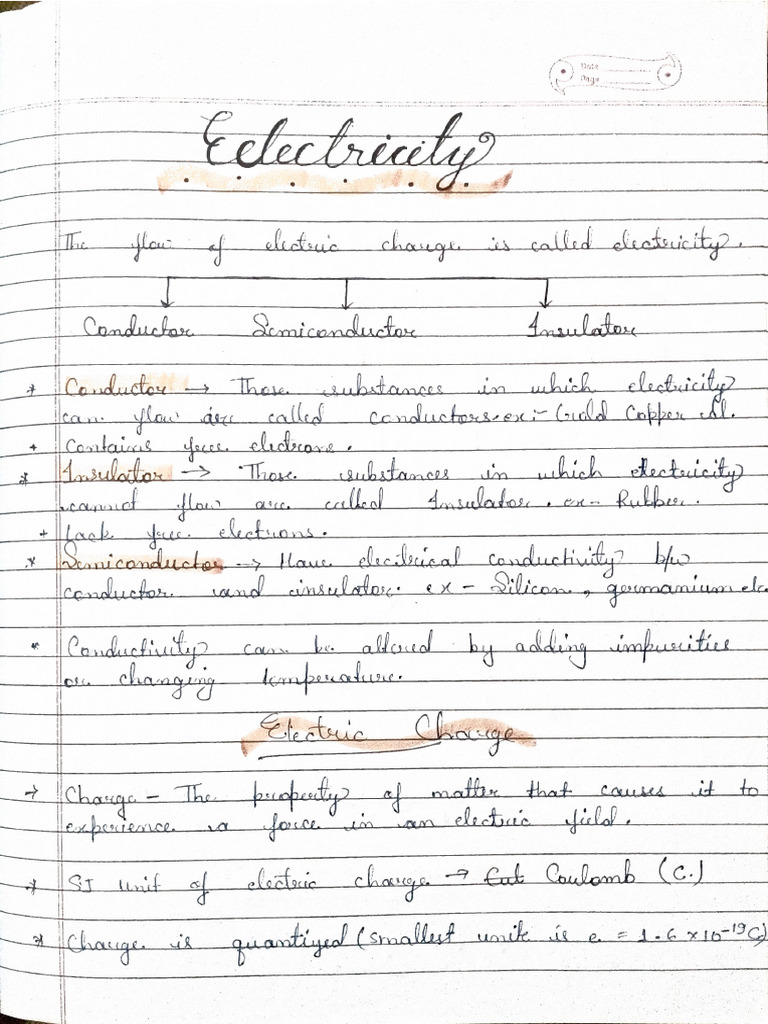 Date
Page
Electricity
The flow of electric charge is called electricity.
Conductor Semiconductor Insulator
* Conductor → Those substances in which electricity
can flow are called conductors. ex:- Gold Copper Al.
+ Contains free electrons.
* Insulator → Those substances in which electricity
cannot flow are called Insulator. ex- Rubber.
+ Lack free electrons.
* Semiconductor → Have elecitrical conductivity b/w
conductor and insulator. ex - Silicon, germanium etc.
* Conductivity can be altered by adding impurities
or changing temperature.
Electric Charge
→ Charge - The property of matter that causes it to
experience a force in an electric field.
* SI unit of electric charge → Coulomb (C.)
* Charge is quantized (smallest unit is e = 1.6 × 10⁻¹⁹ C)